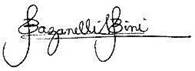 Baganelli Bini